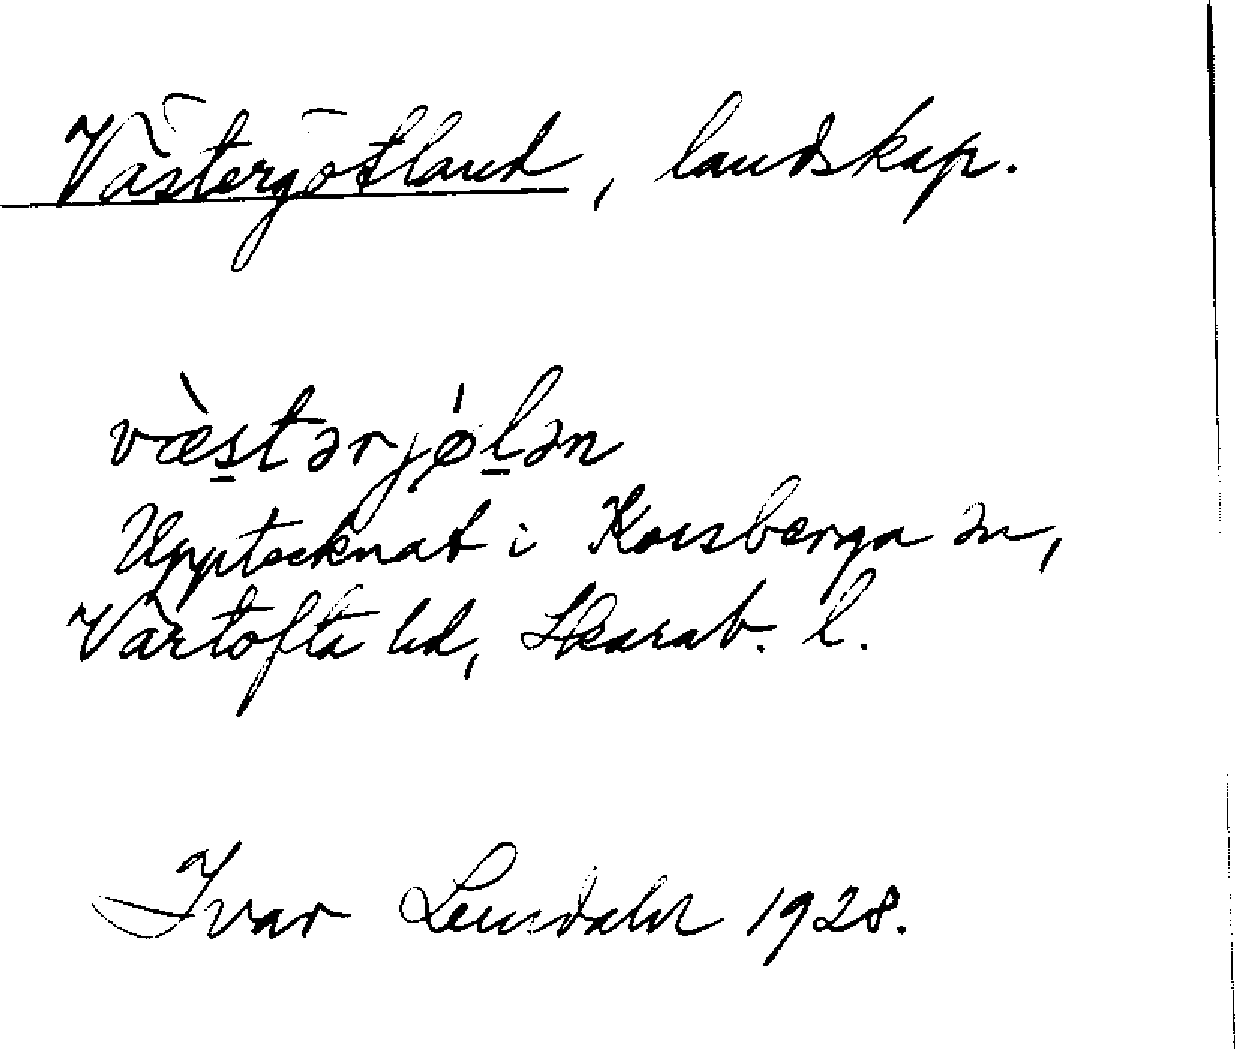 Västergötland, landskap.
væ̀s̠tərjǿl̠ən
Upptecknat i Korsberga sn,
Vartofta hd, Skarab. l.
Ivar Lundahl 1928.